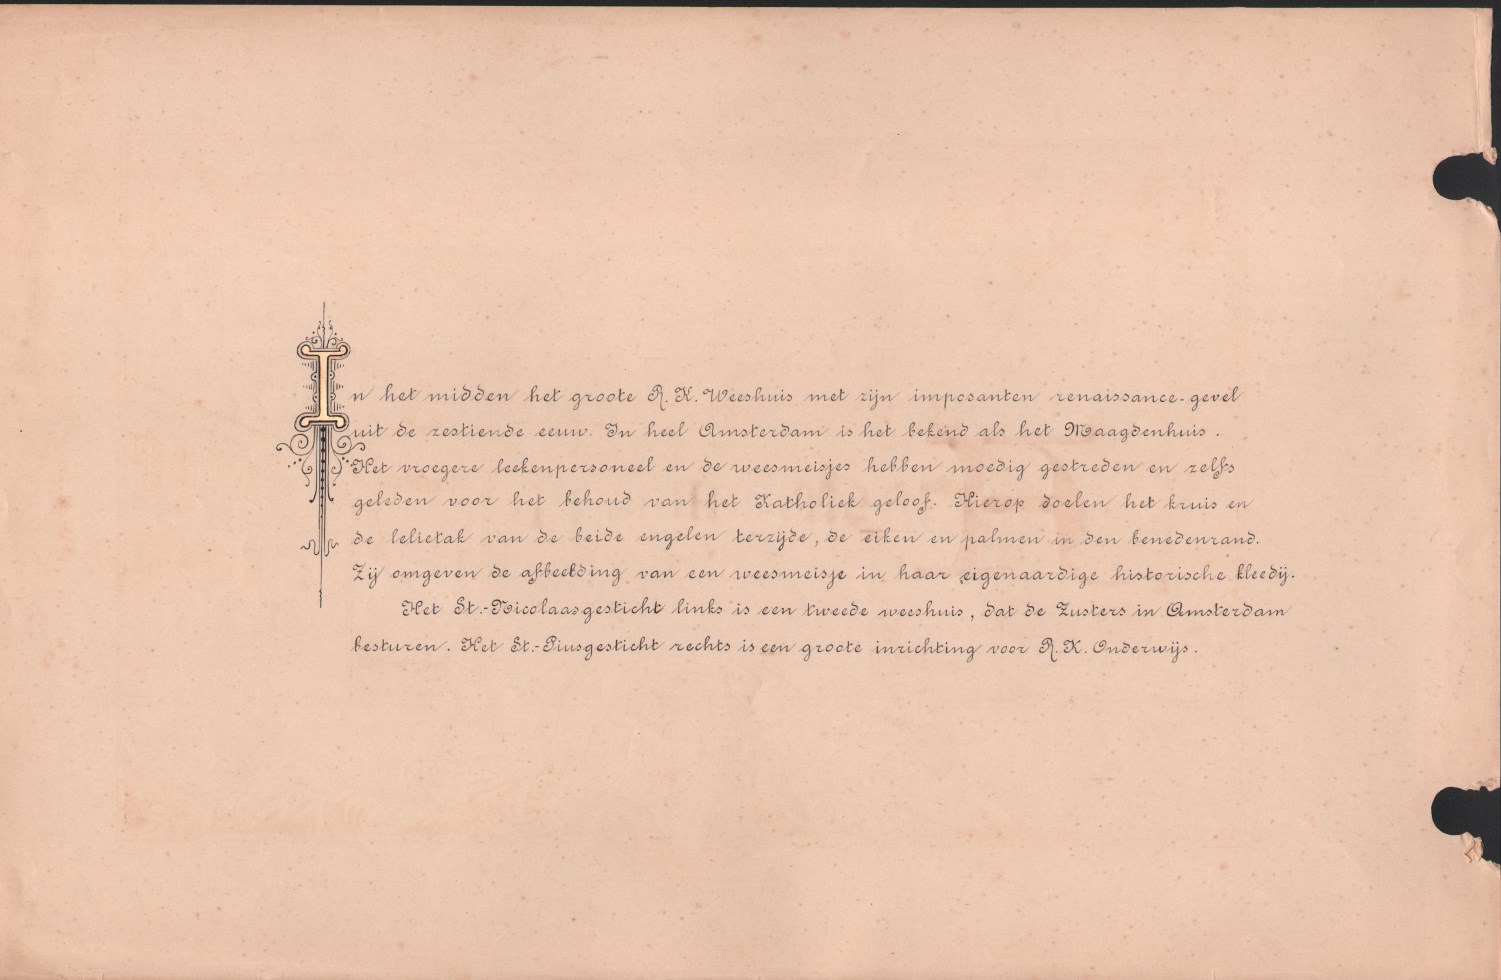 In het midden het groote R. K. Weeshuis met zijn imposanten renaissance-gevel
uit de zestiende eeuw. In heel Amsterdam is het bekend als het Maagdenhuis.
Het vroegere leekenpersoneel en de weesmeisjes hebben moedig gestreden en zelfs
geleden voor het behoud van het Katholiek geloof. Hierop doelen het kruis en
de lelietak van de beide engelen terzijde, de eiken en palmen in den benedenrand.
Zij omgeven de afbeelding van een weesmeisje in haar eigenaardige historische kleedij.
Het St.-Nicolaasgesticht links is een tweede weeshuis, dat de Zusters in Amsterdam
besturen. Het St.-Piusgesticht rechts is een groote inrichting voor R. K. Onderwijs.